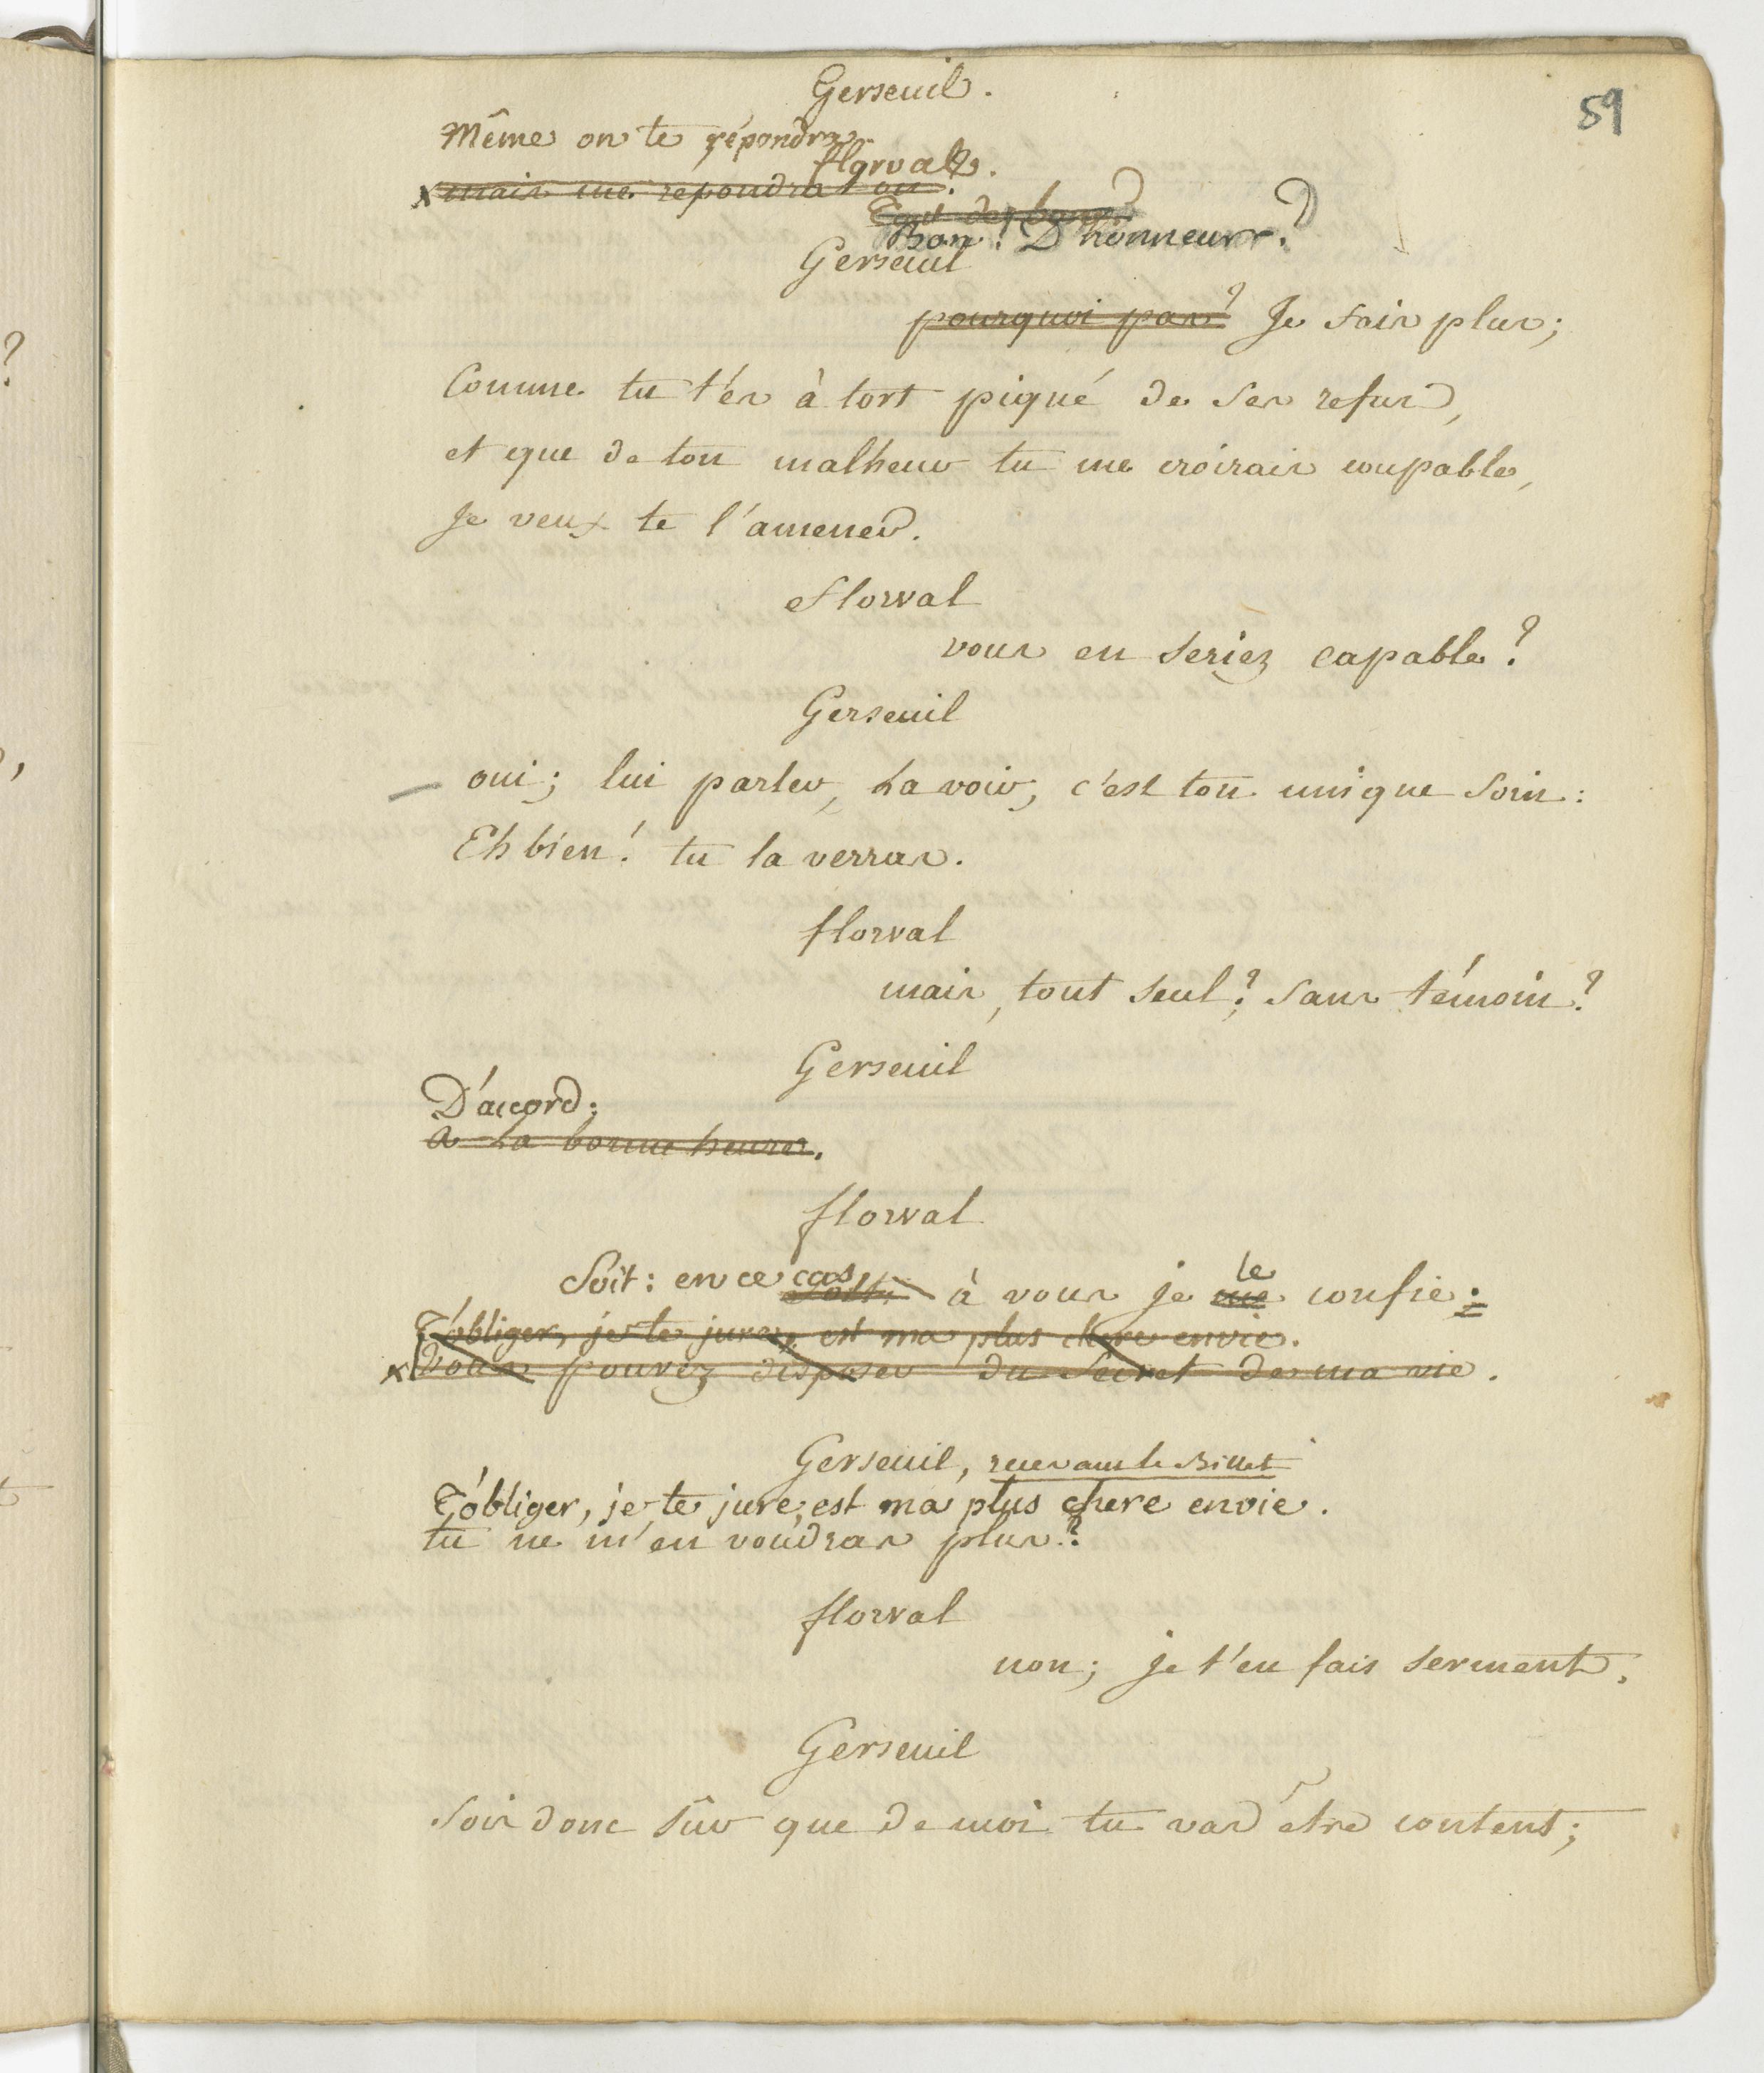 59
Gerseuil.
Même on te répondra.
florval.
x mais me répondra t'on?
Bon! D'honneur?
Gerseuil
pourquoi pas? Je fais plus;
Comme tu t'es à tort piqué de ses refus,
et que de ton malheur tu me croirais coupable,
Je veux te l'amener.
florval
vous en seriez capable?
Gerseuil
oui; lui parler, la voir; c'est ton unique soin:
Eh bien! tu la verras.
florval
mais, tout seul? sans témoin?
Gerseuil
D'accord;
a la bonne heure.
florval
Soit: en ce cas, soit; à vous je me le confie:
T'obliger, je te jure, est ma plus chere envie.
x vous pouvez disposer du secret de ma vie.
Gerseuil, recevant le Billet
T'obliger, je te jure, est ma plus chere envie.
tu ne m'en voudras plus?
florval
non; je t'en fais serment.
Gerseuil
Sois donc sûr que de moi tu vas être content;